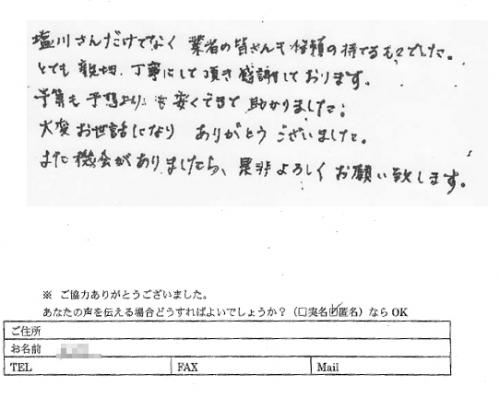 塩川さんだけでなく 業者の皆さんも信頼の持てるものでした。
とても親切、丁寧にして頂き感謝しております。
予算も予想よりも安くできて助かりました。
大変お世話になり ありがとうございました。
また機会がありましたら、是非よろしくお願い致します。
※ ご協力ありがとうございました。
あなたの声を伝える場合どうすればよいでしょうか？（□実名☑匿名）ならOK
ご住所
お名前
TEL FAX Mail